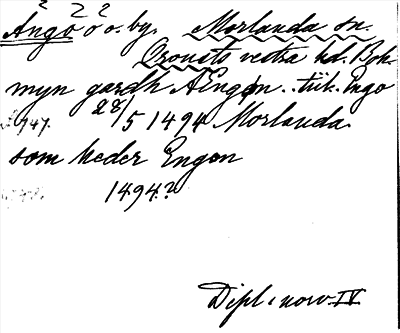 2 2 2
Ängö ö o. by. Morlanda sn.
Orousts vestra hd. Boh.
myn gardh Aengön. tuk. Engo
s. 747. 28/5 1494 Morlanda.
som heder Engön
1494?
Dipl. norv. IV